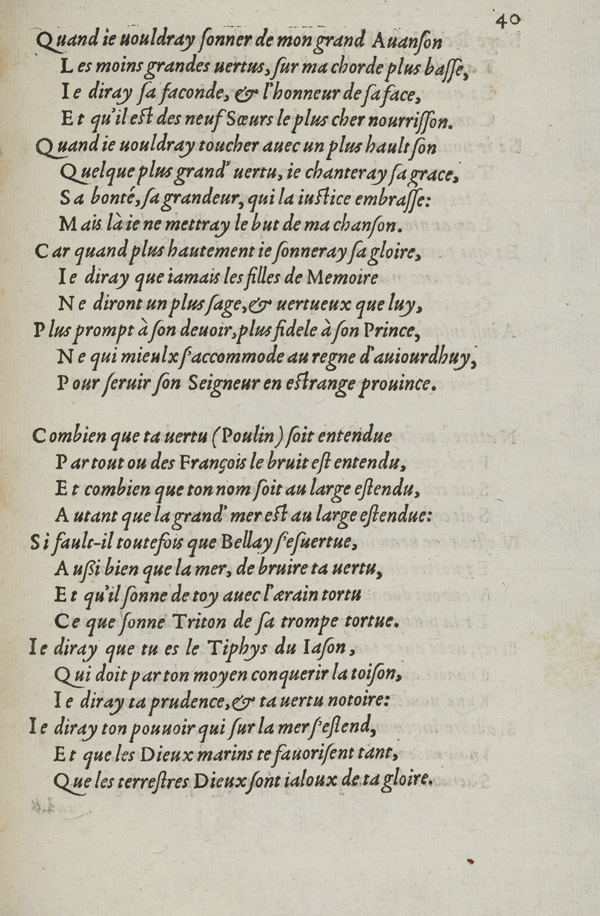 40
Quand ie uouldray ſonner de mon grand Auanſon
Les moins grandes uertus, ſur ma chorde plus baſſe,
Ie diray ſa faconde, & l'honneur de ſa face,
Et qu'il eſt des neuf Sœurs le plus cher nourriſſon.
Quand ie uouldray toucher auec un plus hault ſon
Quelque plus grand' uertu, ie chanteray ſa grace,
Sa bonté, ſa grandeur, qui la iuſtice embraſſe:
Mais là ie ne mettray le but de ma chanſon.
Car quand plus hautement ie ſonneray ſa gloire,
Ie diray que iamais les filles de Memoire
Ne diront un plus ſage, & uertueux que luy,
Plus prompt à ſon deuoir, plus fidele à ſon Prince,
Ne qui mieulx ſ'accommode au regne d'auiourdhuy,
Pour ſeruir ſon Seigneur en eſtrange prouince.
Combien que ta uertu (Poulin) ſoit entendue
Par tout ou des François le bruit eſt entendu,
Et combien que ton nom ſoit au large eſtendu,
Autant que la grand' mer eſt au large eſtendue:
Si fault-il toutefois que Bellay ſ'eſuertue,
Außi bien que la mer, de bruire ta uertu,
Et qu'il ſonne de toy auec l'ærain tortu
Ce que ſonne Triton de ſa trompe tortue.
Ie diray que tu es le Tiphys du Iaſon,
Qui doit par ton moyen conquerir la toiſon,
Ie diray ta prudence, & ta uertu notoire:
Ie diray ton pouuoir qui ſur la mer ſ'eſtend,
Et que les Dieux marins te fauoriſent tant,
Que les terreſtres Dieux ſont ialoux de ta gloire.